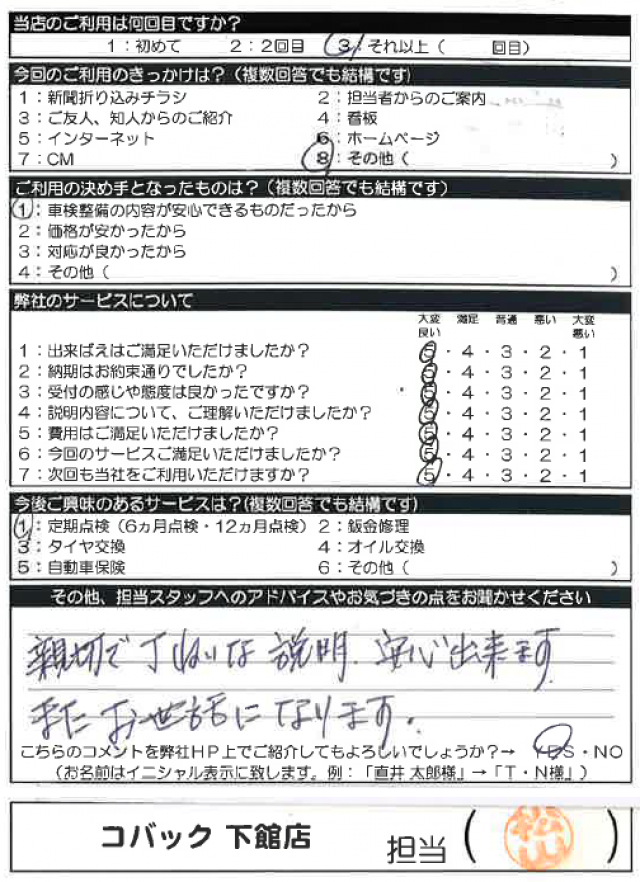 当店のご利用は何回目ですか?
1:初めて 2:2回目 3:それ以上( 回目)
今回のご利用のきっかけは?(複数回答でも結構です)
1:新聞折り込みチラシ 2:担当者からのご案内
3:ご友人、知人からのご紹介 4:看板
5:インターネット 6:ホームページ
7:CM 8:その他( )
ご利用の決め手となったものは?(複数回答でも結構です)
1:車検整備の内容が安心できるものだったから
2:価格が安かったから
3:対応が良かったから
4:その他( )
弊社のサービスについて
大変良い 満足 普通 悪い 大変悪い
1:出来ばえはご満足いただけましたか? 5・4・3・2・1
2:納期はお約束通りでしたか? 5・4・3・2・1
3:受付の感じや態度は良かったですか? 5・4・3・2・1
4:説明内容について、ご理解いただけましたか? 5・4・3・2・1
5:費用はご満足いただけましたか? 5・4・3・2・1
6:今回のサービスご満足いただけましたか? 5・4・3・2・1
7:次回も当社をご利用いただけますか? 5・4・3・2・1
今後ご興味のあるサービスは?(複数回答でも結構です)
1:定期点検(6ヵ月点検・12ヵ月点検) 2:鈑金修理
3:タイヤ交換 4:オイル交換
5:自動車保険 6:その他( )
その他、担当スタッフへのアドバイスやお気づきの点をお聞かせください
親切で丁ねいな説明.安心出来ます
またお世話になります.
こちらのコメントを弊社HP上でご紹介してもよろしいでしょうか?→ YES・NO
(お名前はイニシャル表示に致します。例:「直井 太郎様」→「T・N様」)
コバック 下館店 担当( 松山 )